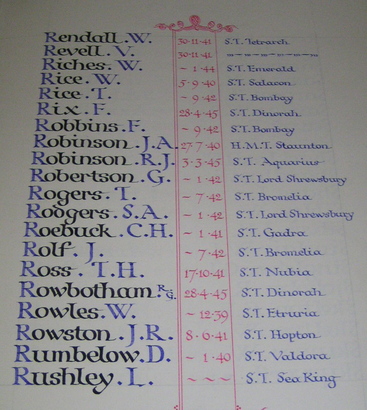 Rendall. W. 30·11·41 S.T. Tetrarch
Revell. V. 30·11·41 – – – – – – – –
Riches. W. ~ 1·44 S.T. Emerald
Rice. W. 5·9·40 S.T. Salacon
Rice. T. ~ 9·42 S.T. Bombay
Rix. F. 28·4·45 S.T. Dinorah
Robbins. F. ~ 9·42 S.T. Bombay
Robinson. J.A. 27·7·40 H.M.T. Staunton
Robinson. R.J. 3·3·45 S.T. Aquarius
Robertson. G. ~ 1·42 S.T. Lord Shrewsbury
Rogers. T. ~ 7·42 S.T. Bromelia
Rodgers. S.A. ~ 1·42 S.T. Lord Shrewsbury
Roebuck. C.H. ~ 1·41 S.T. Gadra
Rolf. J. ~ 7·42 S.T. Bromelia
Ross. T.H. 17·10·41 S.T. Nubia
Rowbotham. R.G. 28·4·45 S.T. Dinorah
Rowles. W. ~ 12·39 S.T. Etruria
Rowston. J.R. 8·6·41 S.T. Hopton
Rumbelow. D. ~ 1·40 S.T. Valdora
Rushley. L. ~ ~ ~ S.T. Sea King